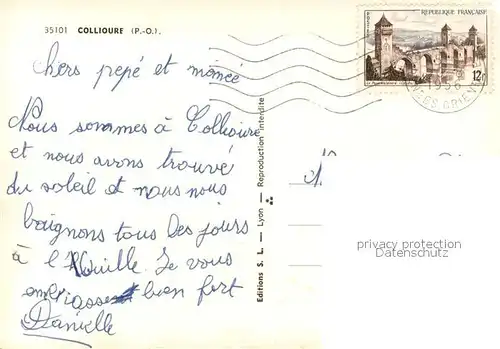 35101 COLLIOURE (P.-O.).
chers pepé et mémée
Nous sommes à Collioure
et nous avons trouvé
du soleil et nous nous
baignons tous les jours
à l'Houille. Je vous
embrasse bien fort
Danielle
Editions S. L. — Lyon — Reproduction interdite
REPUBLIQUE FRANÇAISE
12F
1956
ES ORIENT
privacy protection
Datenschutz